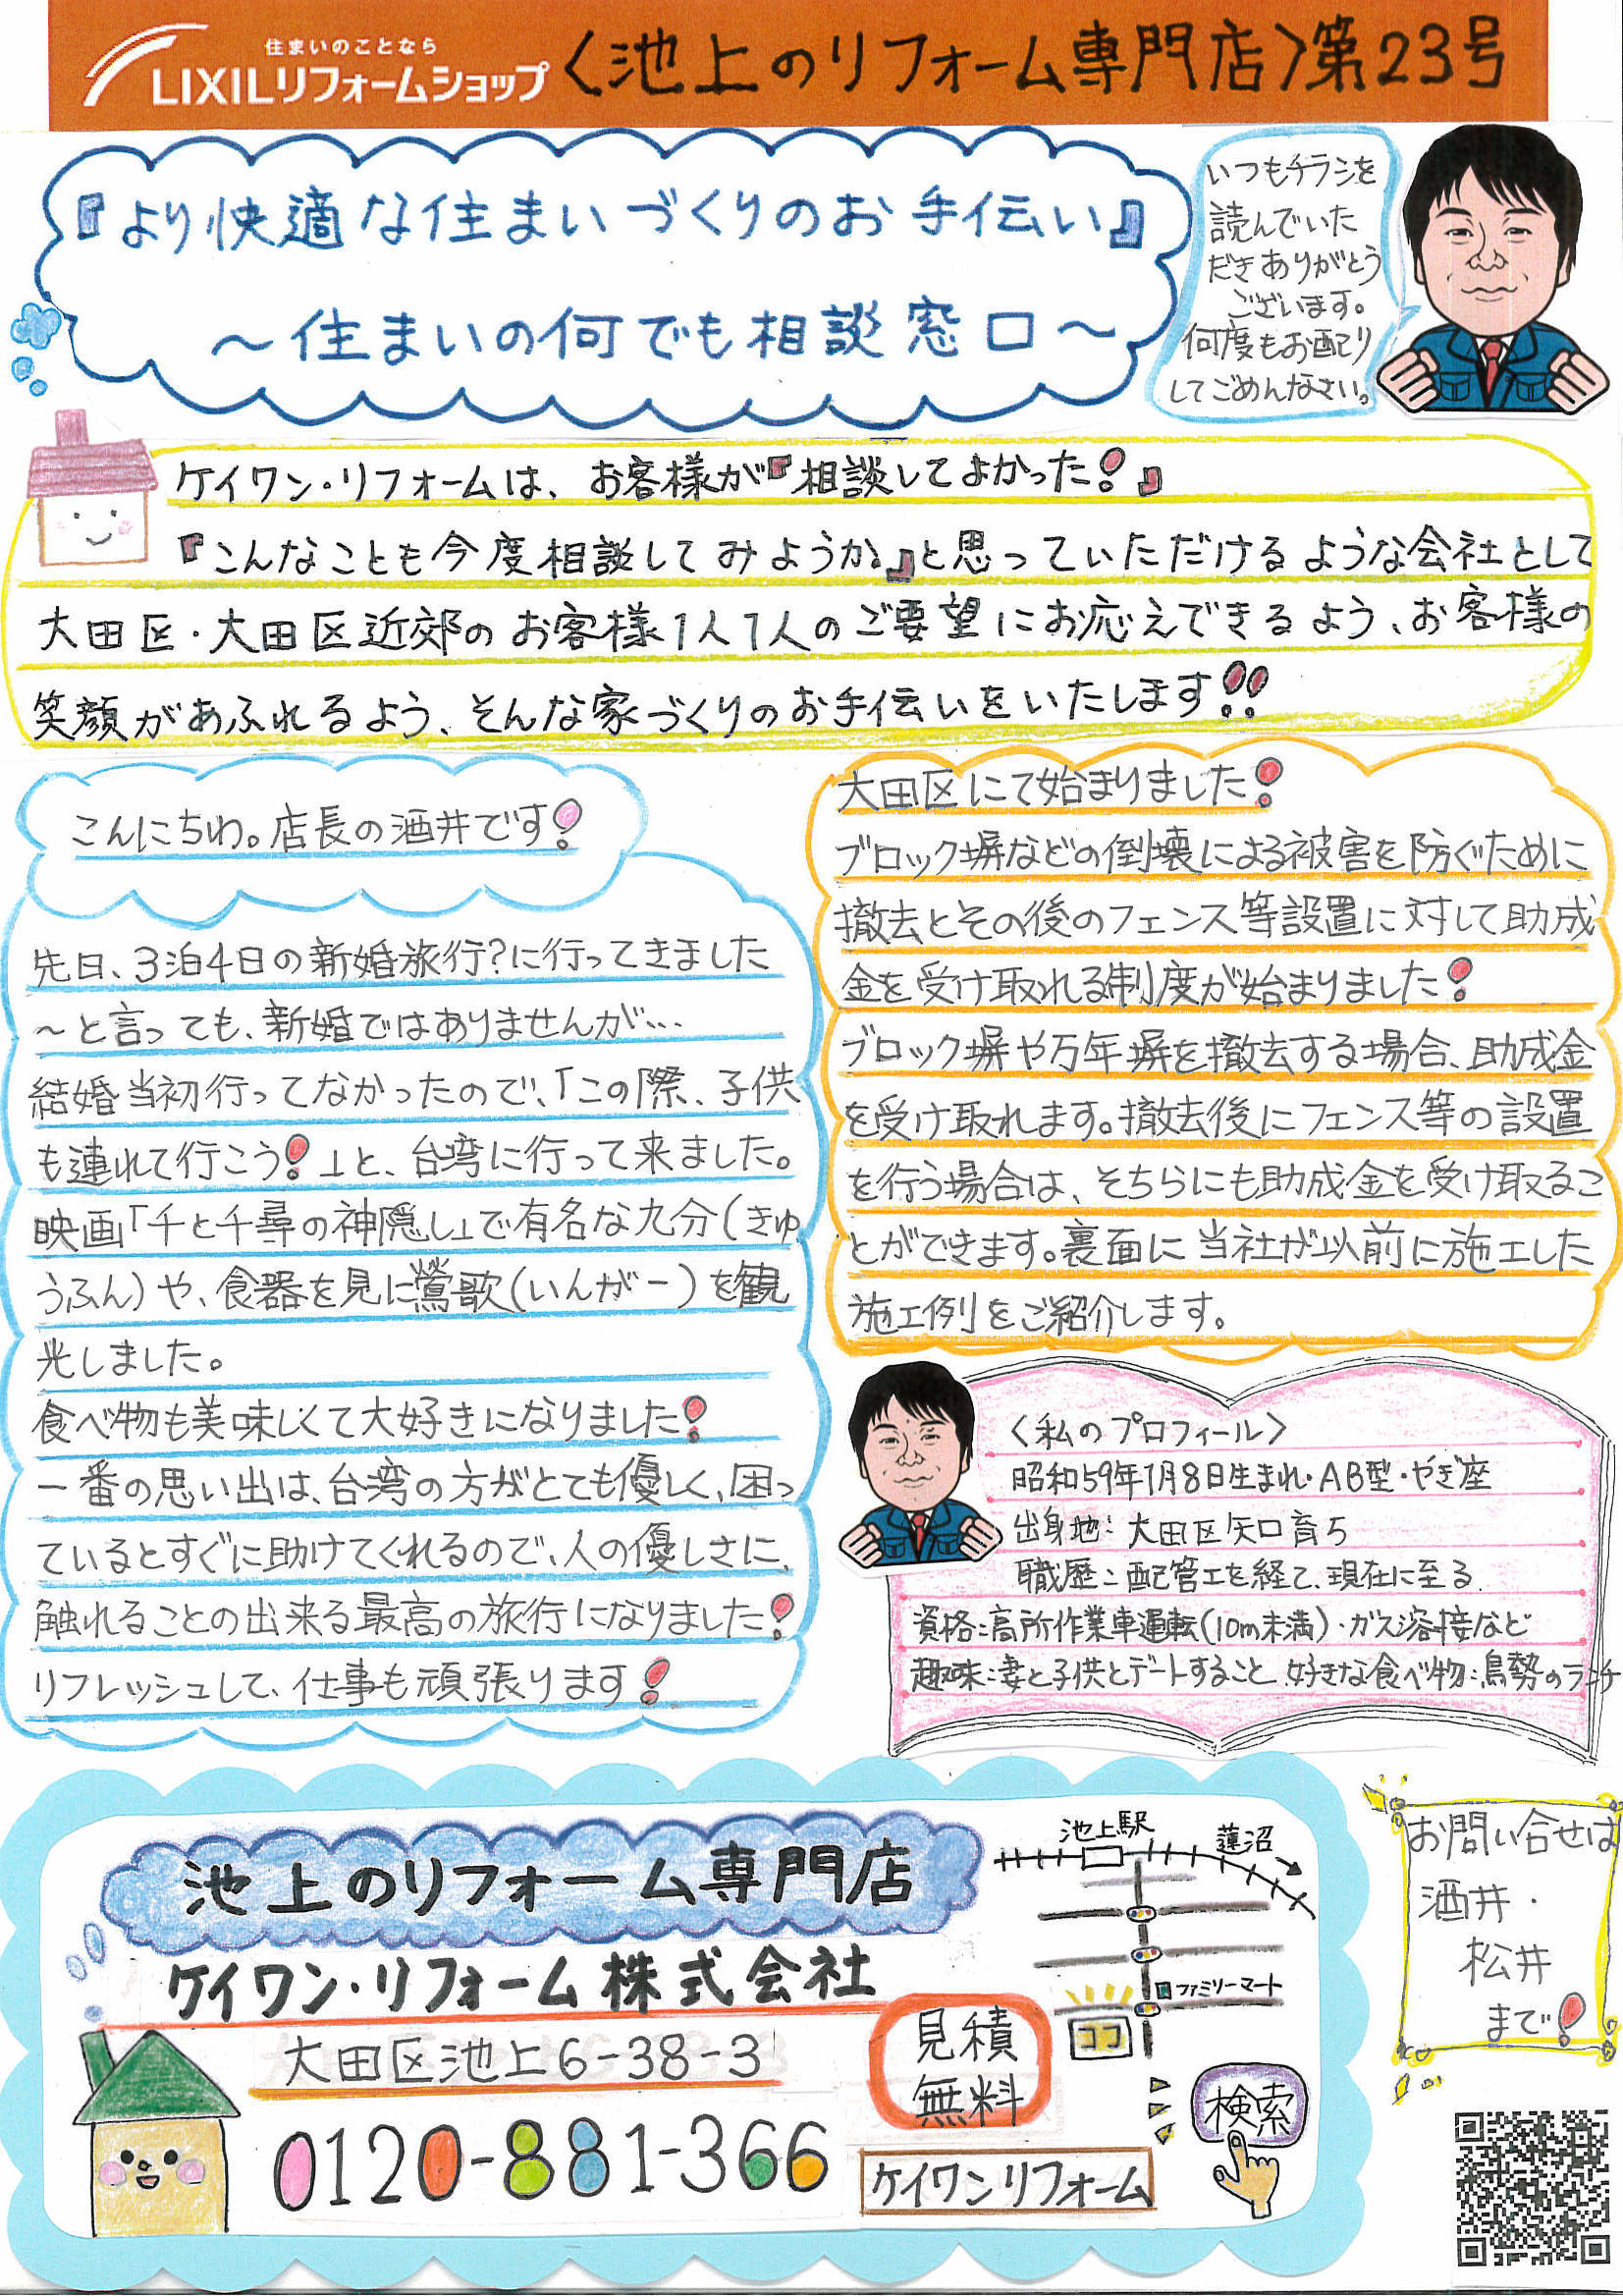 住まいのことなら
LIXILリフォームショップ
〈池上のリフォーム専門店〉第23号
『より快適な住まいづくりのお手伝い』
～住まいの何でも相談窓口～
いつもチラシを
読んでいた
だきありがとう
ございます。
何度もお配り
してごめんなさい。
ケイワン・リフォームは、お客様が『相談してよかった!』
『こんなことも今度相談してみようか。』と思っていただけるような会社として
大田区・大田区近郊のお客様1人1人のご要望にお応えできるよう、お客様の
笑顔があふれるよう、そんな家づくりのお手伝いをいたします!!
こんにちわ。店長の酒井です!
先日、3泊4日の新婚旅行?に行ってきました
～と言っても、新婚ではありませんが…
結婚当初行ってなかったので、「この際、子供
も連れて行こう!」と、台湾に行って来ました。
映画「千と千尋の神隠し」で有名な九分(きゅ
うふん)や、食器を見に鶯歌(いんがー)を観
光しました。
食べ物も美味しくて大好きになりました!
一番の思い出は、台湾の方がとても優しく、困っ
ているとすぐに助けてくれるので、人の優しさに、
触れることの出来る最高の旅行になりました!
リフレッシュして、仕事も頑張ります!
大田区にて始まりました!
ブロック塀などの倒壊による被害を防ぐために
撤去とその後のフェンス等設置に対して助成
金を受け取れる制度が始まりました!
ブロック塀や万年塀を撤去する場合、助成金
を受け取れます。撤去後にフェンス等の設置
を行う場合は、そちらにも助成金を受け取るこ
とができます。裏面に当社が以前に施工した
施工例をご紹介します。
〈私のプロフィール〉
昭和59年1月8日生まれ・AB型・やぎ座
出身地:大田区矢口育ち
職歴:配管工を経て、現在に至る
資格:高所作業車運転(10m未満)・ガス溶接など
趣味:妻と子供とデートすること 好きな食べ物:鳥勢のランチ
池上のリフォーム専門店
ケイワン・リフォーム株式会社
大田区池上6-38-3
0120-881-366
見積
無料
ケイワンリフォーム
検索
池上駅
蓮沼
ファミリーマート
ココ
お問い合せは
酒井・
松井
まで!